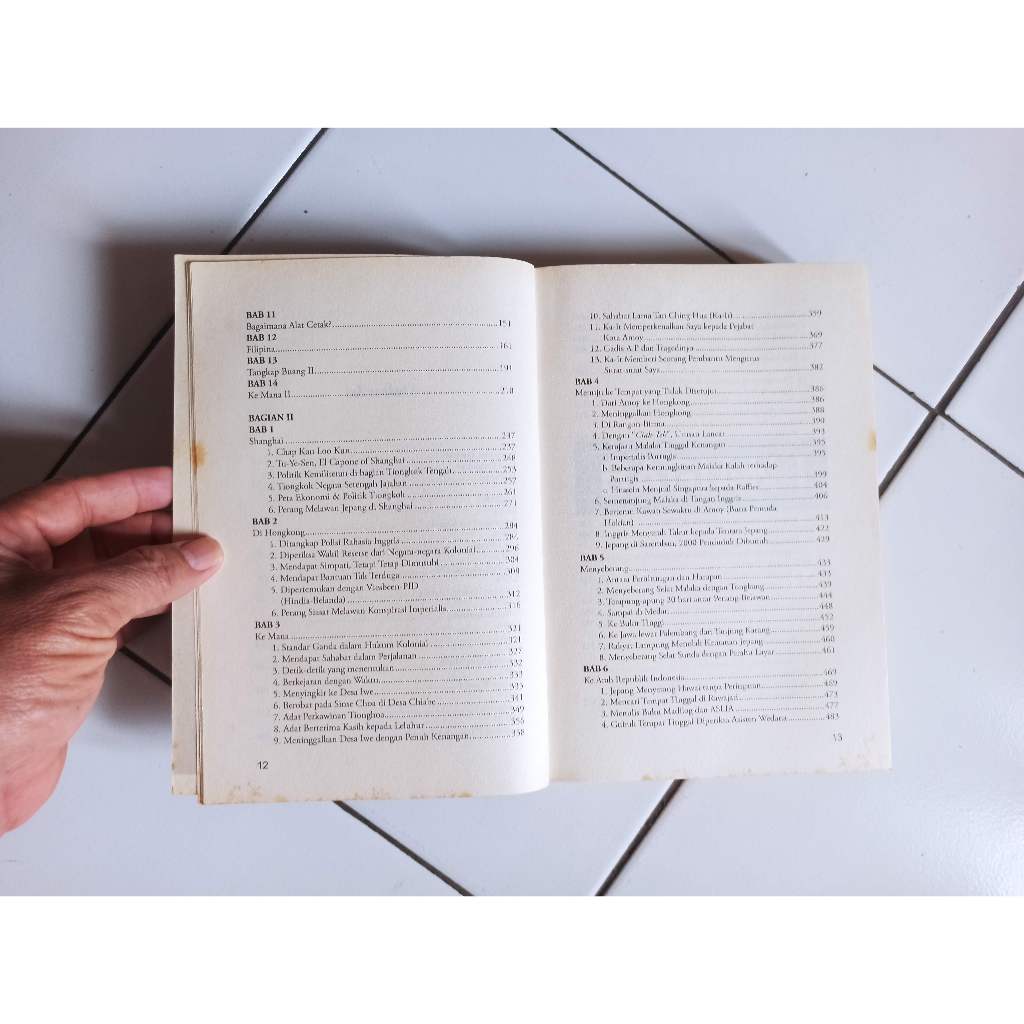 BAB 11
Bagaimana Alat Cetak?....................151
BAB 12
Filipina....................161
BAB 13
Tangkap Buang II....................191
BAB 14
Ke Mana II....................210
BAGIAN II
BAB 1
Shanghai....................237
1. Chap Kau Loo Kun....................237
2. Tu-Ye-Sen, El Capone of Shanghai....................248
3. Politik Kemiliteran di bagian Tiongkok Tengah....................253
4. Tiongkok Negara Setengah Jajahan....................257
5. Peta Ekonomi & Politik Tiongkok....................261
6. Perang Melawan Jepang di Shanghai....................271
BAB 2
Di Hongkong....................284
1. Ditangkap Polisi Rahasia Inggris....................
2. Diperiksa Wakil Reserse dari Negara-negara Kolonial....................296
3. Mendapat Simpati, Tetapi Tetap Dimusuhi....................304
4. Mendapat Bantuan Tak Terduga....................308
5. Dipertemukan dengan Visibeen-PID
(Hindia-Belanda)....................312
6. Perang Siasat Melawan Komplotan Imperialis....................316
BAB 3
Ke Mana....................321
1. Standar Ganda dalam Hukum Kolonial....................321
2. Mendapat Sahabat dalam Perjalanan....................327
3. Detik-detik yang menentukan....................332
4. Berkejaran dengan Waktu....................
5. Menyingkir ke Desa Iwe....................335
6. Berobat pada Sinse Choa di Desa Chia-be....................341
7. Adat Perkawinan Tionghoa....................349
8. Adat Berterima Kasih kepada Leluhur....................356
9. Meninggalkan Desa Iwe dengan Penuh Kenangan....................358
12
10. Sahabat Lama Tan Ching Hua (Ka-It)....................359
11. Ka-It Memperkenalkan Saya kepada Pejabat
Kota Amoy....................369
12. Gadis A.P dan Tragedinya....................377
13. Ka-It Memberi Seorang Pembantu Mengurus
Surat-surat Saya....................382
BAB 4
Menuju ke Tempat yang Tidak Dituju....................386
1. Dari Amoy ke Hongkong....................386
2. Meninggalkan Hongkong....................388
3. Di Rangon-Birma....................390
4. Dengan "Ciah Teh", Urusan Lancar....................393
5. Kerajaan Malaka Tinggal Kenangan....................395
a. Imperialis Portugis....................395
b. Beberapa Kemungkinan Malaka Kalah terhadap
Portugis....................399
c. Hussein Menjual Singapura kepada Raffles....................404
6. Semenanjung Malaka di Tangan Inggris....................406
7. Bertemu Kawan Sewaktu di Amoy (Buaya Pemuda
Hokkian)....................413
8. Inggris Menyerah Takluk kepada Tentara Jepang....................422
9. Jepang di Sarembun, 2000 Penduduk Dibunuh....................429
BAB 5
Menyeberang....................433
1. Antara Perjuangan dan Harapan....................433
2. Menyeberang Selat Malaka dengan Tongkang....................439
3. Terapung-apung 30 hari antar Penang-Belawan....................444
4. Sampai di Medan....................448
5. Ke Bukit Tinggi....................452
6. Ke Jawa lewat Palembang dan Tanjung Karang....................459
7. Rakyat Lampung Menolak Kemauan Jepang....................460
8. Menyeberang Selat Sunda dengan Perahu Layar....................461
BAB 6
Ke Arah Republik Indonesia....................469
1. Jepang Menyerang Hawai tanpa Peringatan....................469
2. Mencari Tempat Tinggal di Rawajati....................473
3. Menulis Buku Madilog dan ASLIA....................477
4. Gubuk Tempat Tinggal Diperiksa Asisten Wedana....................483
13